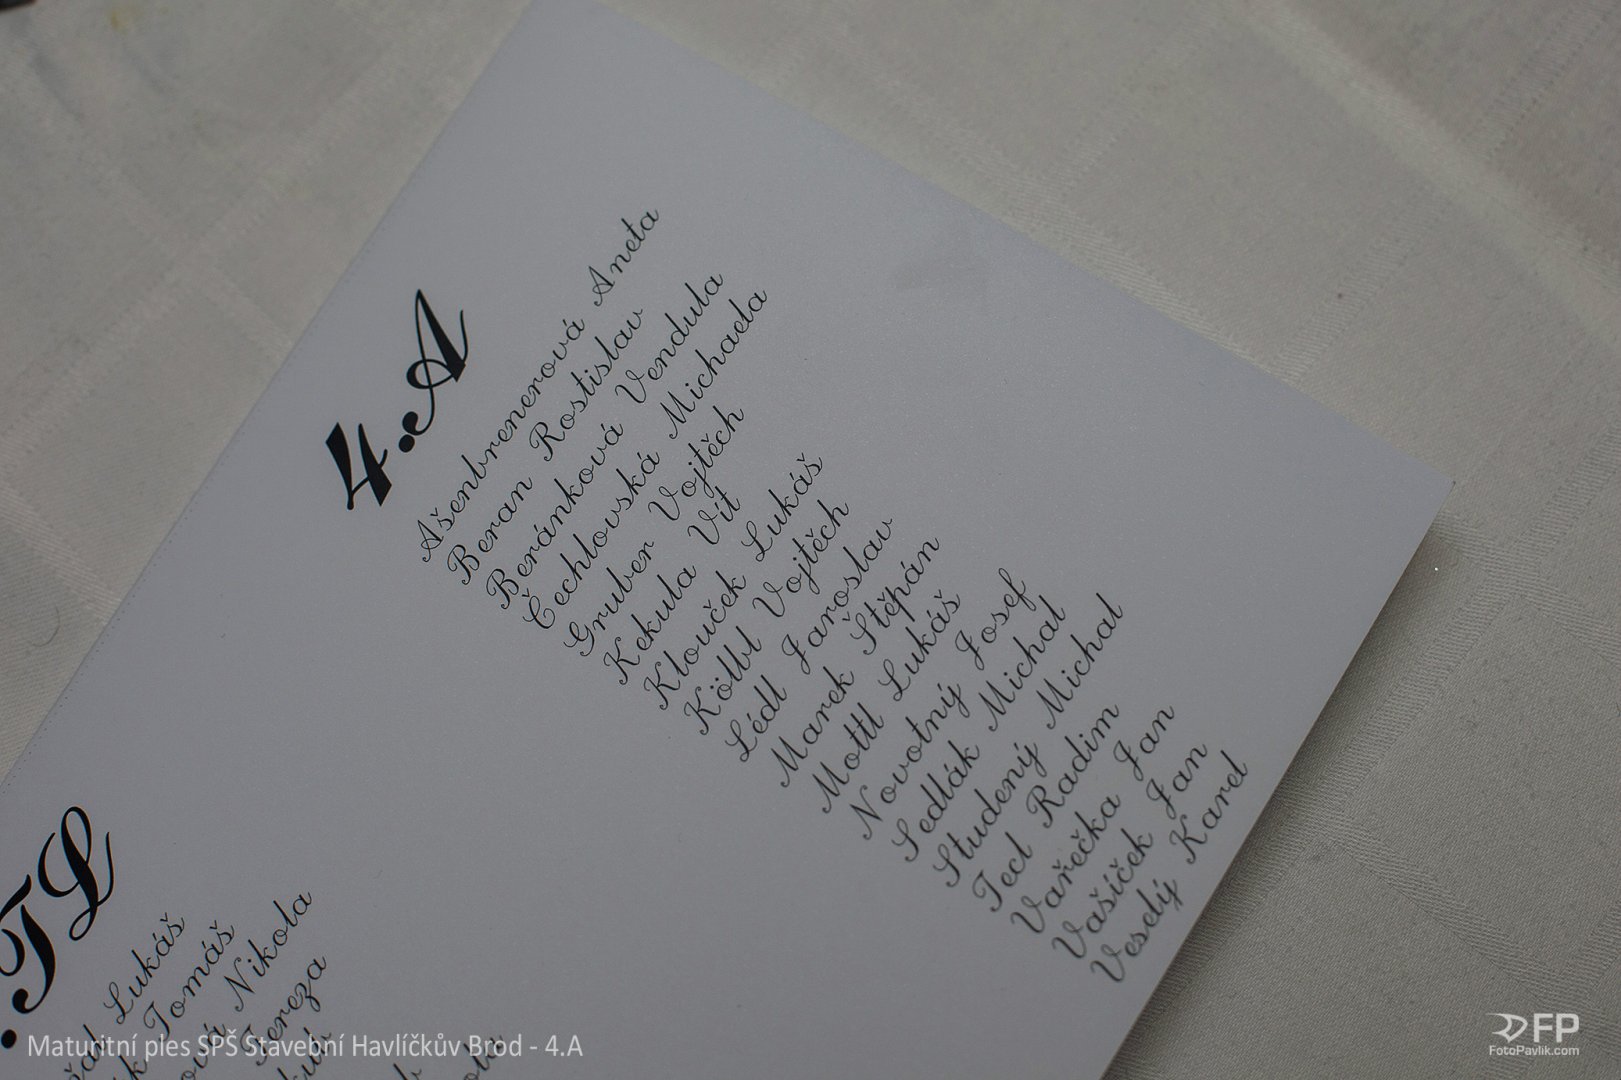 4.A
Ašenbrenerová Aneta
Beran Rostislav
Beránková Vendula
Čechlovská Michaela
Gruber Vojtěch
Kekula Vít
Klouček Lukáš
Kölbl Vojtěch
Lédl Jaroslav
Marek Štěpán
Mottl Lukáš
Novotný Josef
Sedlák Michal
Studený Michal
Tecl Radim
Vařečka Jan
Vašíček Jan
Veselý Karel
.TL
Lukáš
Tomáš
Nikola
Tereza
Maturitní ples SPŠ Stavební Havlíčkův Brod - 4.A
FP
FotoPavlik.com